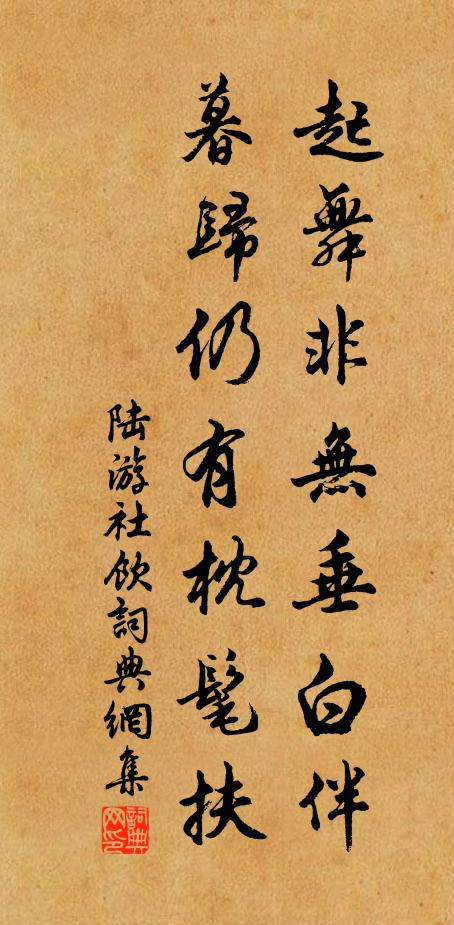 起舞非無垂白伴
暮歸仍有枕髦扶
陆游社飲詞典網集
詞典网印